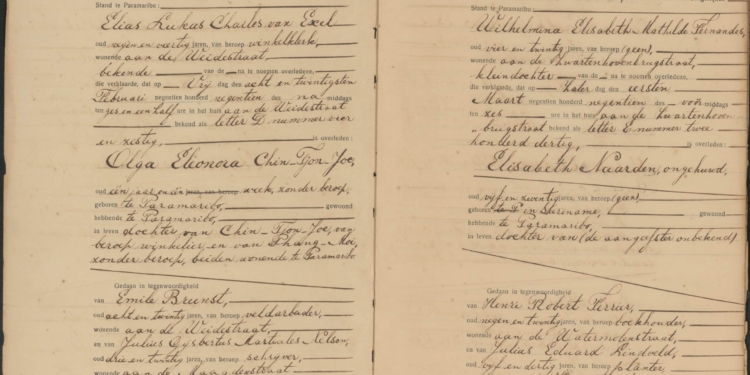 Stand te Paramaribo:
Elias Lukas Charles van Exel
oud negen en veertig jaren, van beroep winkelklerk,
wonende aan de Weidestraat,
bekende van de na te noemen overledene,
die verklaarde, dat op Vrijdag den acht en twintigsten
Februari negentien honderd negentien des na middags
ten zes en een half ure in het huis aan de Weidestraat
bekend als letter D nummer vier
en zestig, is overleden:
Olga Eleonora Chin-Tjon-Joe,
oud één jaar en één jaren, van beroep week, zonder beroep,
geboren te Paramaribo, gewoond
hebbende te Paramaribo,
in leven dochter van Chin-Tjon-Joe, van
beroep winkelier, en van
zonder beroep, beiden wonende te Paramaribo
Gedaan in tegenwoordigheid
van Emile Brunst,
oud acht en twintig jaren, van beroep veldarbeider,
wonende aan de Weidestraat,
en van Julius Gysbertus Martinales Nelson,
oud drie en twintig jaren, van beroep schrijver,
wonende aan de Maagdenstraat
Stand te Paramaribo:
Wilhelmina Elisabeth Mathilde Fernandes,
oud vier en twintig jaren, van beroep (geen)
wonende aan de Zwartenhovenbrugstraat,
kleindochter van de na te noemen overledene,
die verklaarde, dat op Zaterdag den eersten
Maart negentien honderd negentien des voor middags
ten zes ure in het huis aan de Zwartenhoven
„brugstraat bekend als letter E nummer twee
honderd dertig, is overleden:
Elisabeth Naarden, ongehuwd,
oud vijf en zeventig jaren, van beroep (geen)
geboren in Suriname, gewoond
hebbende te Paramaribo,
in leven dochter van (de aangeefster onbekend)
Gedaan in tegenwoordigheid
van Henri Robert Ferrier,
oud negen en twintig jaren, van beroep boekhouder,
wonende aan de Watermolenstraat,
en van Julius Eduard Lindveld,
oud vijf en dertig jaren, van beroep planter,